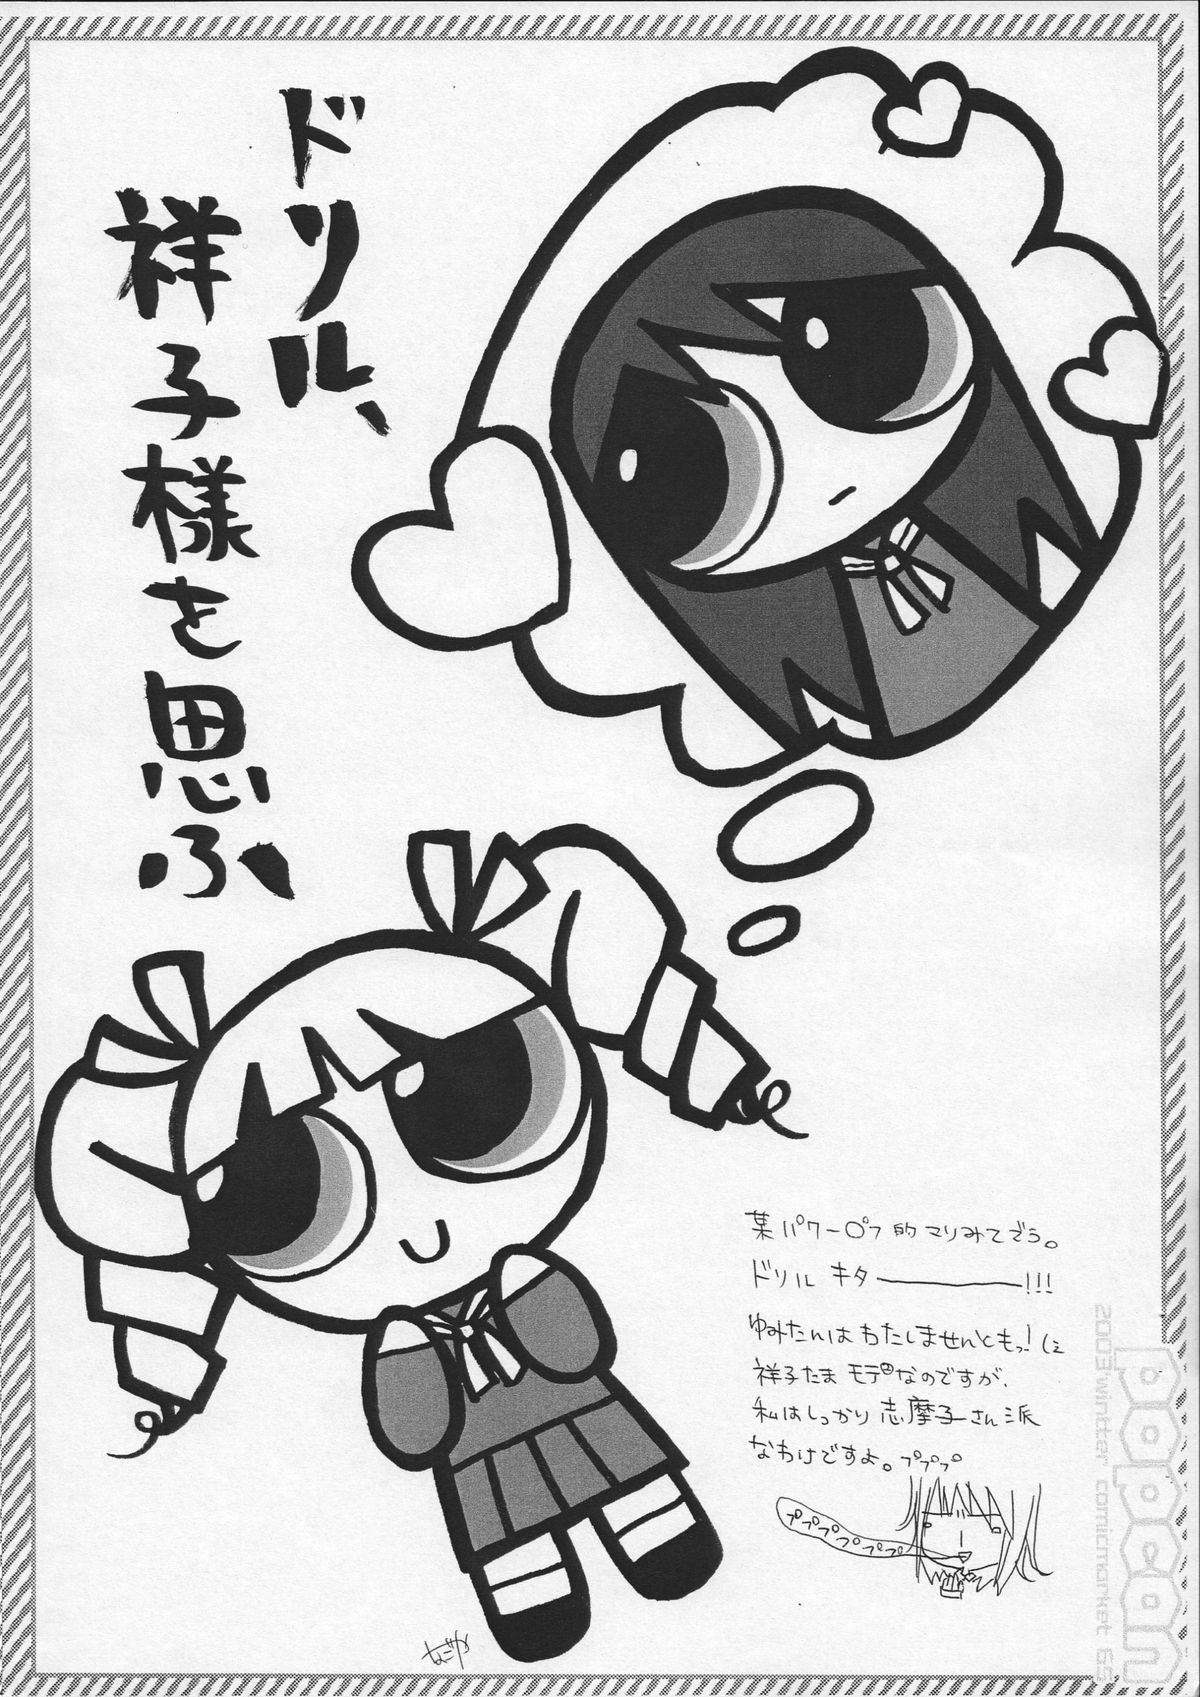 ドリル、
祥子様を思ふ
某パワーパフ的マリみてでう。
ドリル キターーーーー!!!
ゆみたんはわたしませんともっ!
祥子たま モテ
なのですが、
私はしっかり 志摩子さん派
なわけですよ。ププププ
ププププププププ
popcan
2003 winter comicmarket 65